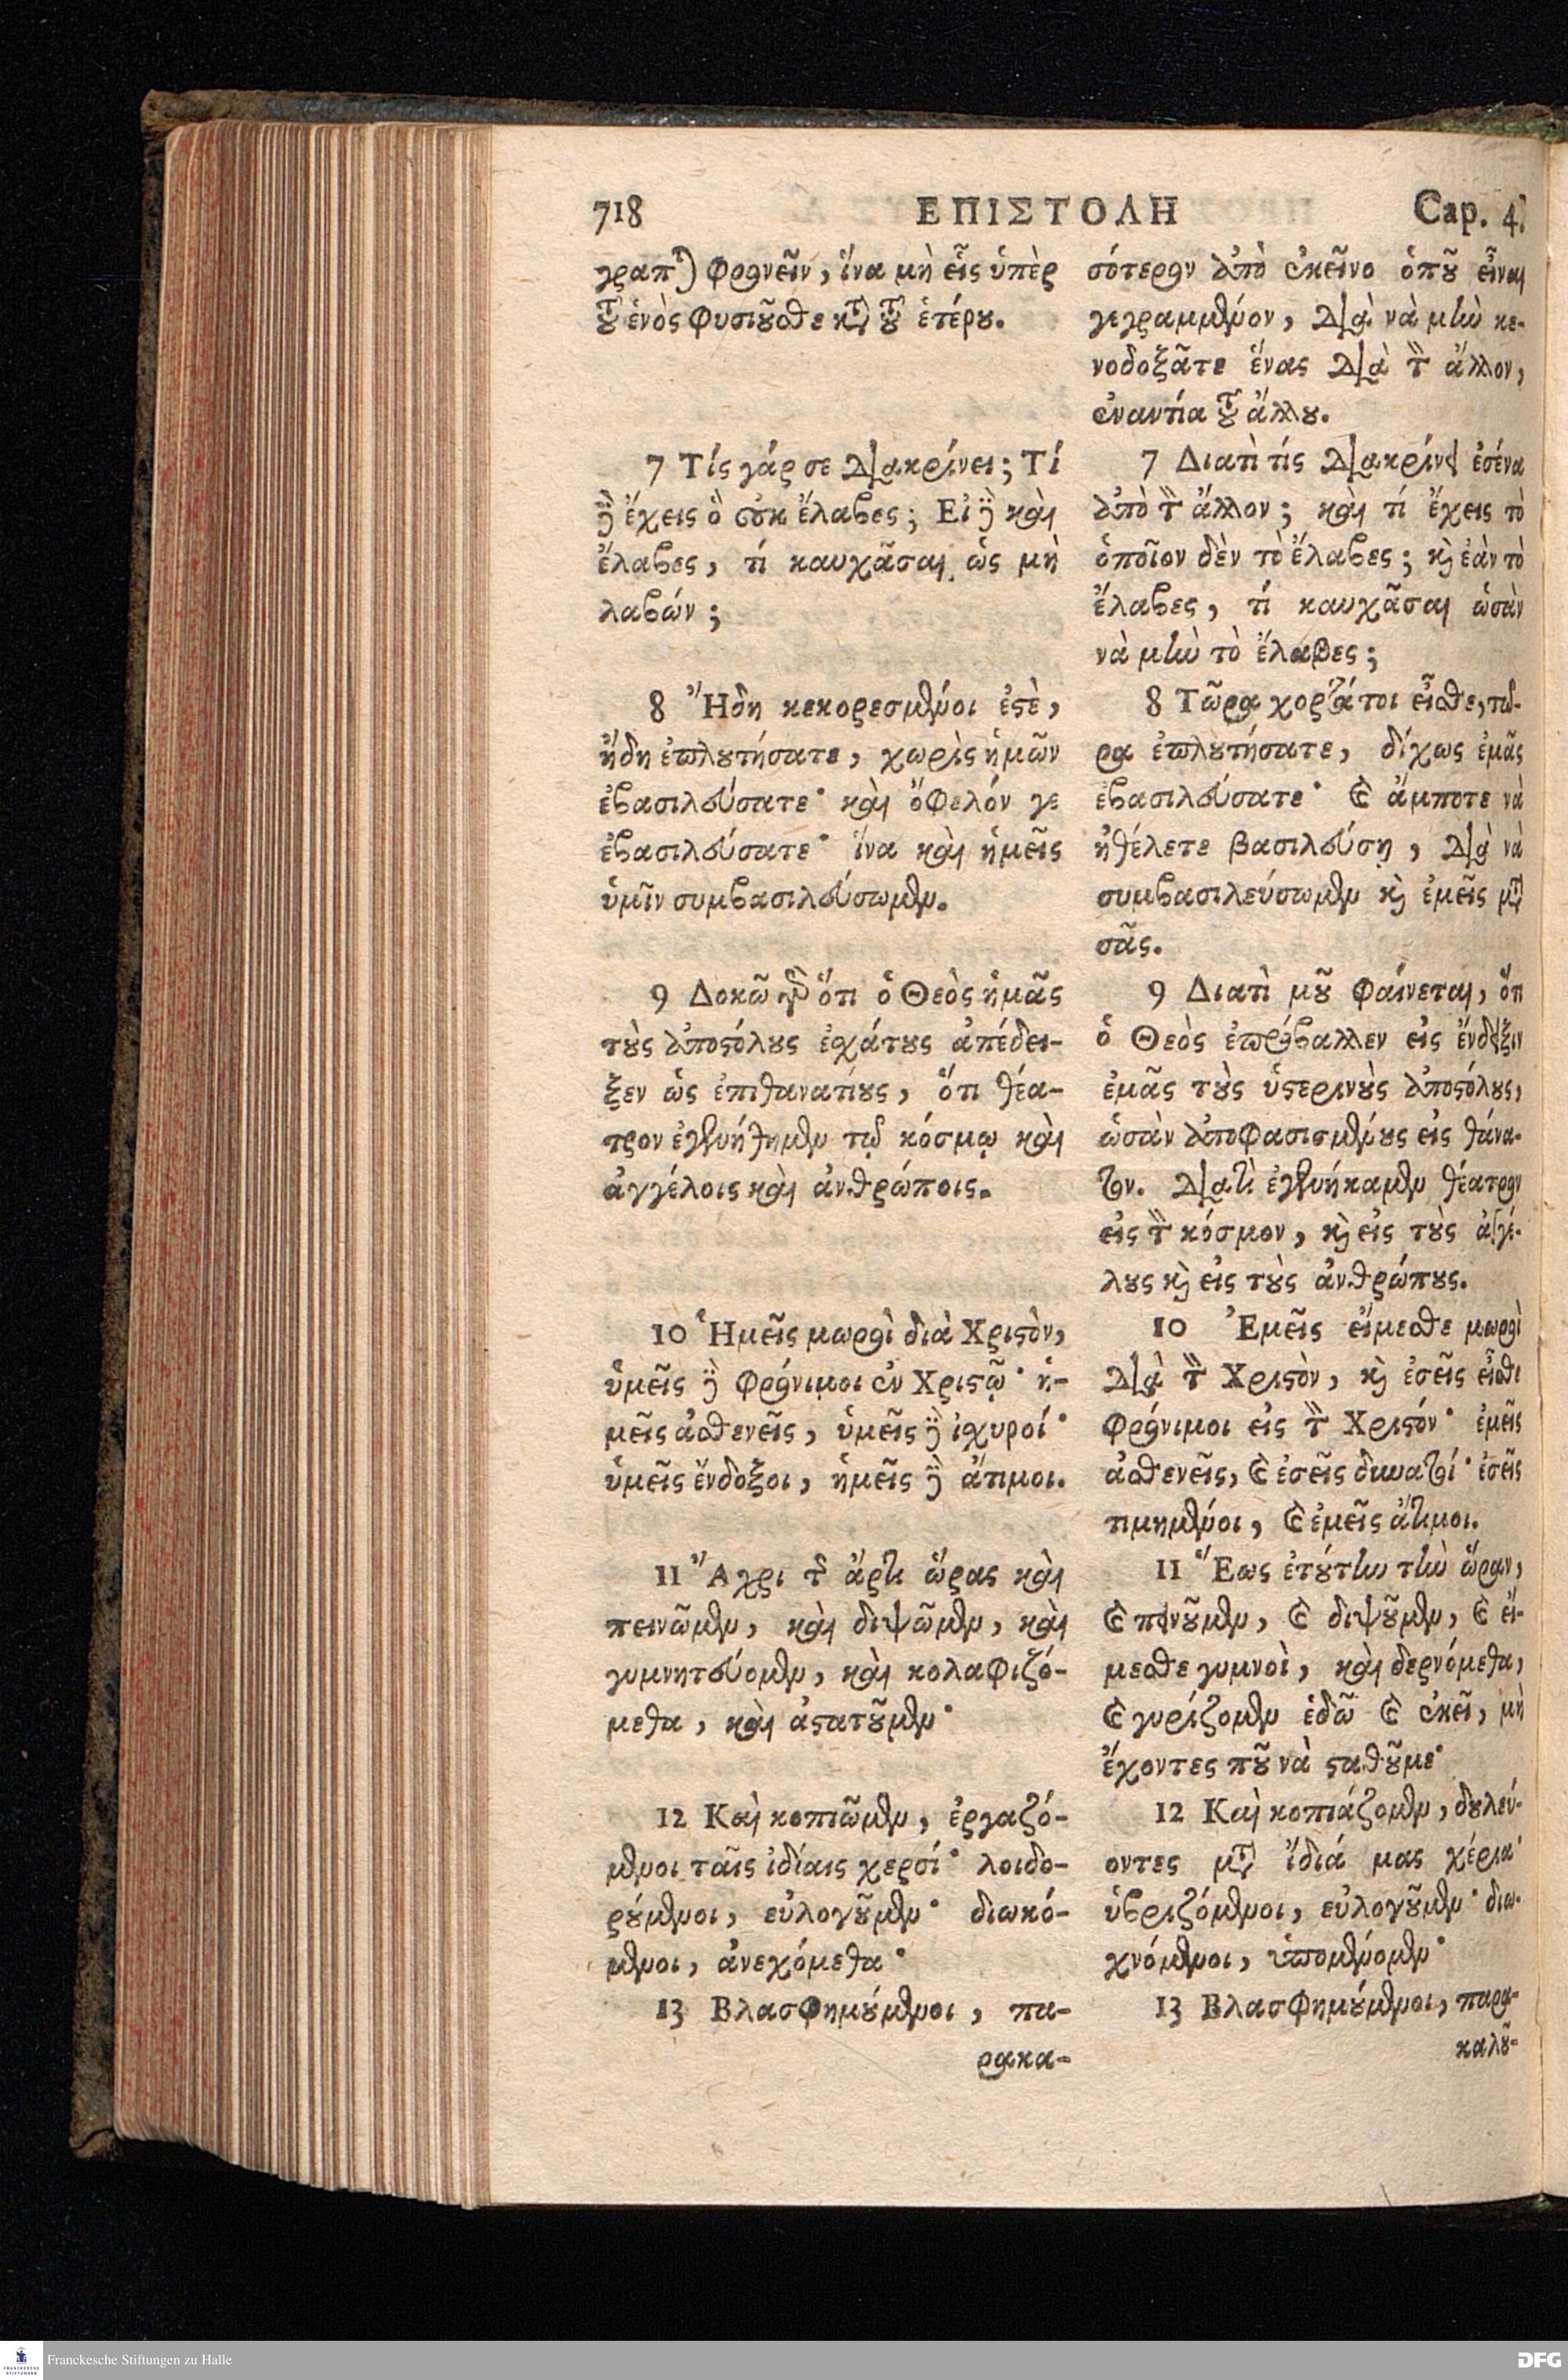 718 ΕΠΙΣΤΟΛΗ Cap. 4.
γραπται φρονεῖν, ἵνα μὴ εἷς ὑπὲρ
τοῦ ἑνὸς φυσιοῦσθε κατὰ τοῦ ἑτέρου.
7 Τίς γάρ σε διακρίνει; Τί
δὲ ἔχεις ὃ οὐκ ἔλαβες; Εἰ δὲ καὶ
ἔλαβες, τί καυχᾶσαι ὡς μὴ
λαβών;
8 Ἤδη κεκορεσμένοι ἐστὲ,
ἤδη ἐπλουτήσατε, χωρὶς ἡμῶν
ἐβασιλεύσατε· καὶ ὄφελόν γε
ἐβασιλεύσατε· ἵνα καὶ ἡμεῖς
ὑμῖν συμβασιλεύσωμεν.
9 Δοκῶ γὰρ ὅτι ὁ Θεὸς ἡμᾶς
τοὺς ἀποστόλους ἐσχάτους ἀπέδει-
ξεν ὡς ἐπιθανατίους, ὅτι θέα-
τρον ἐγενήθημεν τῷ κόσμῳ καὶ
ἀγγέλοις καὶ ἀνθρώποις.
10 Ἡμεῖς μωροὶ διὰ Χριστὸν,
ὑμεῖς δὲ φρόνιμοι ἐν Χριστῷ· ἡ-
μεῖς ἀσθενεῖς, ὑμεῖς δὲ ἰσχυροί·
ὑμεῖς ἔνδοξοι, ἡμεῖς δὲ ἄτιμοι.
11 Ἄχρι τῆς ἄρτι ὥρας καὶ
πεινῶμεν, καὶ διψῶμεν, καὶ
γυμνητεύομεν, καὶ κολαφιζό-
μεθα, καὶ ἀστατοῦμεν·
12 Καὶ κοπιῶμεν, ἐργαζό-
μενοι ταῖς ἰδίαις χερσί· λοιδο-
ρούμενοι, εὐλογοῦμεν· διωκό-
μενοι, ἀνεχόμεθα·
13 Βλασφημούμενοι, πα-
ρακα-
σότερον ἀπὸ ἐκεῖνο ὁποῦ εἶναι
γεγραμμένον, διὰ νὰ μὴν κε-
νοδοξᾶτε ἕνας διὰ τὸν ἄλλον,
ἐναντία τοῦ ἄλλου.
7 Διατὶ τίς διακρίνει ἐσένα
ἀπὸ τὸν ἄλλον; καὶ τί ἔχεις τὸ
ὁποῖον δὲν τὸ ἔλαβες; καὶ ἐὰν τὸ
ἔλαβες, τί καυχᾶσαι ὡσὰν
νὰ μὴν τὸ ἔλαβες;
8 Τῶρα χορτάτοι εἶσθε, τῶ-
ρα ἐπλουτήσατε, δίχως ἐμᾶς
ἐβασιλεύσατε· καὶ ἄμποτε νὰ
ἠθέλετε βασιλεύση, διὰ νὰ
συμβασιλεύσωμεν καὶ ἐμεῖς μετὰ
σᾶς.
9 Διατὶ μοῦ φαίνεται, ὅτι
ὁ Θεὸς ἐπρόβαλλεν εἰς ἔνδειξιν
ἐμᾶς τοὺς ὑστερινοὺς ἀποστόλους,
ὡσὰν ἀποφασισμένους εἰς θάνα-
τον. διατὶ ἐγενήκαμεν θέατρον
εἰς τὸν κόσμον, καὶ εἰς τοὺς ἀγγέ-
λους καὶ εἰς τοὺς ἀνθρώπους.
10 Ἐμεῖς εἴμεσθε μωροὶ
διὰ τὸν Χριστὸν, καὶ ἐσεῖς εἶσθε
φρόνιμοι εἰς τὸν Χριστόν· ἐμεῖς
ἀσθενεῖς, καὶ ἐσεῖς δυνατοί· ἐσεῖς
τιμημένοι, καὶ ἐμεῖς ἄτιμοι.
11 Ἕως ἐτούτην τὴν ὥραν,
καὶ πεινοῦμεν, καὶ διψοῦμεν, καὶ εἴ-
μεσθε γυμνοὶ, καὶ δερνόμεθα,
καὶ γυρίζομεν ἐδῶ καὶ ἐκεῖ, μὴ
ἔχοντες ποῦ νὰ σταθοῦμε·
12 Καὶ κοπιάζομεν, δουλεύ-
οντες μετὰ ἴδιά μας χέρια·
ὑβριζόμενοι, εὐλογοῦμεν· διω-
χνόμενοι, ὑπομένομεν·
13 Βλασφημούμενοι, παρα-
καλοῦ-
Franckesche Stiftungen zu Halle
FRANCKESCHE STIFTUNGEN
DFG